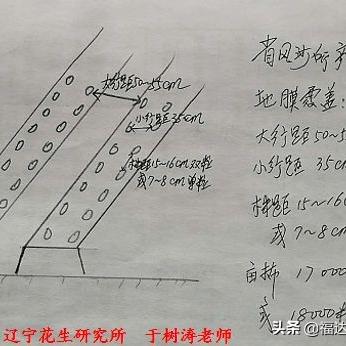 大行距50~55cm
小行距35cm
株距15~16cm双粒
或7~8cm单粒
省风沙研究
地膜覆盖:
大行距50~5
小行距 35c
株距15~16
或7~8cm
亩播 17000
或 18000
辽宁花生研究所 于树涛老师
头条 @福达